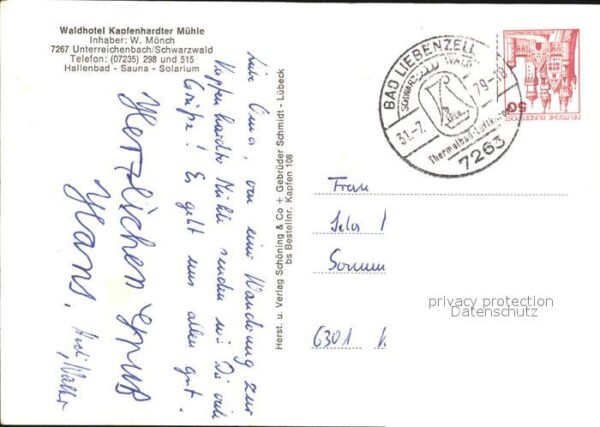 Waldhotel Kapfenhardter Mühle
Inhaber: W. Mönch
7267 Unterreichenbach/Schwarzwald
Telefon: (07235) 298 und 515
Hallenbad - Sauna - Solarium
Oma, von einer Wanderung zur
Kapfenhardter Mühle senden wir Dir viele
Grüße! Es geht uns allen gut.
Herzlichen Gruß
Hans,
Walter
Herst. u. Verlag Schöning & Co + Gebrüder Schmidt - Lübeck
bs Bestellnr. Kapfen 108
BAD LIEBENZELL
SCHWARZWALD
31.-7. 79-18
Thermalbad-Luftkurort
7263
50
DEUTSCHE BUNDESPOST
Frau
6301
privacy protection
Datenschutz